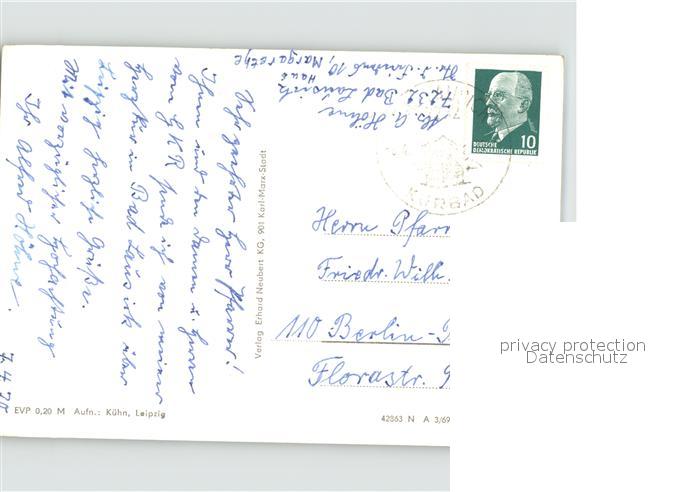 Sehr geehrter Herr Pfarrer!
Ihnen und den Damen u. Herren
vom GKR sende ich von meiner
in Bad Lausick über
Leipzig herzliche Grüße.
Mit vorzüglicher Hochachtung
Ihr Alfred Höhne.
7.4.70
Abs. A. Höhne
7232 Bad Lausick
Haus
Margarethe
DEUTSCHE
DEMOKRATISCHE REPUBLIK
10
KURBAD
Herrn Pfarr
Friedr. Wilh.
110 Berlin-
Florastr. 9
Verlag Erhard Neubert KG, 901 Karl-Marx-Stadt
EVP 0,20 M Aufn.: Kühn, Leipzig
42863 N A 3/69
privacy protection
Datenschutz